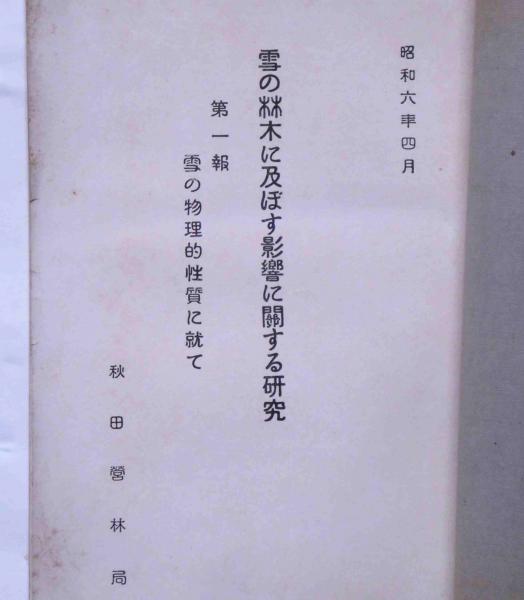 昭和六年四月
雪の林木に及ぼす影響に關する研究
第一報
雪の物理的性質に就て
秋田營林局